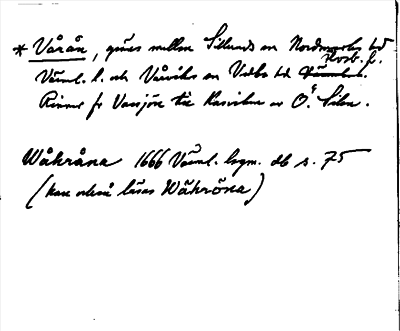 * Vårån, gräns mellan Silends en Nordmarks hd
Värml. l. och Våsviks en Vedbo hd
Rinner fr Vassjön till Karviken av Ö. Silen.
Wåhråna 1666 Värml. lsgm. db s. 75
(kan också läsas Wåhröna)